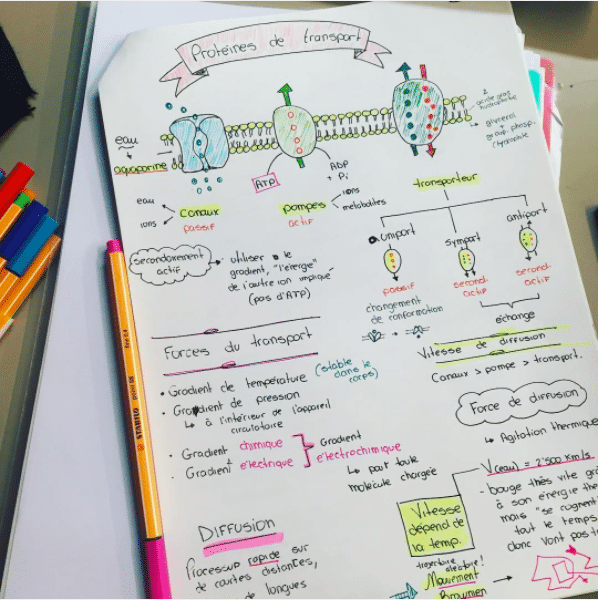 Protéines de transport
2
acide gras
hydrophobe
glycerol
+
group. phosp.
hydrophile
eau
aquaporine
ATP
ADP
+ Pi
eau
ions
canaux
passif
pompes
actif
ions
metabolites
transporteur
uniport
symport
antiport
passif
second.
actif
second.
actif
changement
de conformation
échange
secondairement
actif
utiliser le
gradient, "l'énergie"
de l'autre ion impliqué
(pas d'ATP)
Forces du transport
• Gradient de température (stable
dans le
corps)
• Gradient de pression
↳ à l'intérieur de l'appareil
circulatoire
• Gradient chimique
• Gradient électrique
Gradient
électrochimique
↳ pour toute
molécule chargée
Vitesse de diffusion
Canaux > pompe > transport.
Force de diffusion
↳ Agitation thermique
V(eau) = 2'500 km/s
- bouge très vite
à son énergie
mais "se cognent"
tout le temps
donc vont pas
Vitesse
dépend de
la temp.
trajectoire aléatoire!
Mouvement
Brownien
DIFFUSION
Processus rapide sur
de courtes distances,
de longues
STABILO